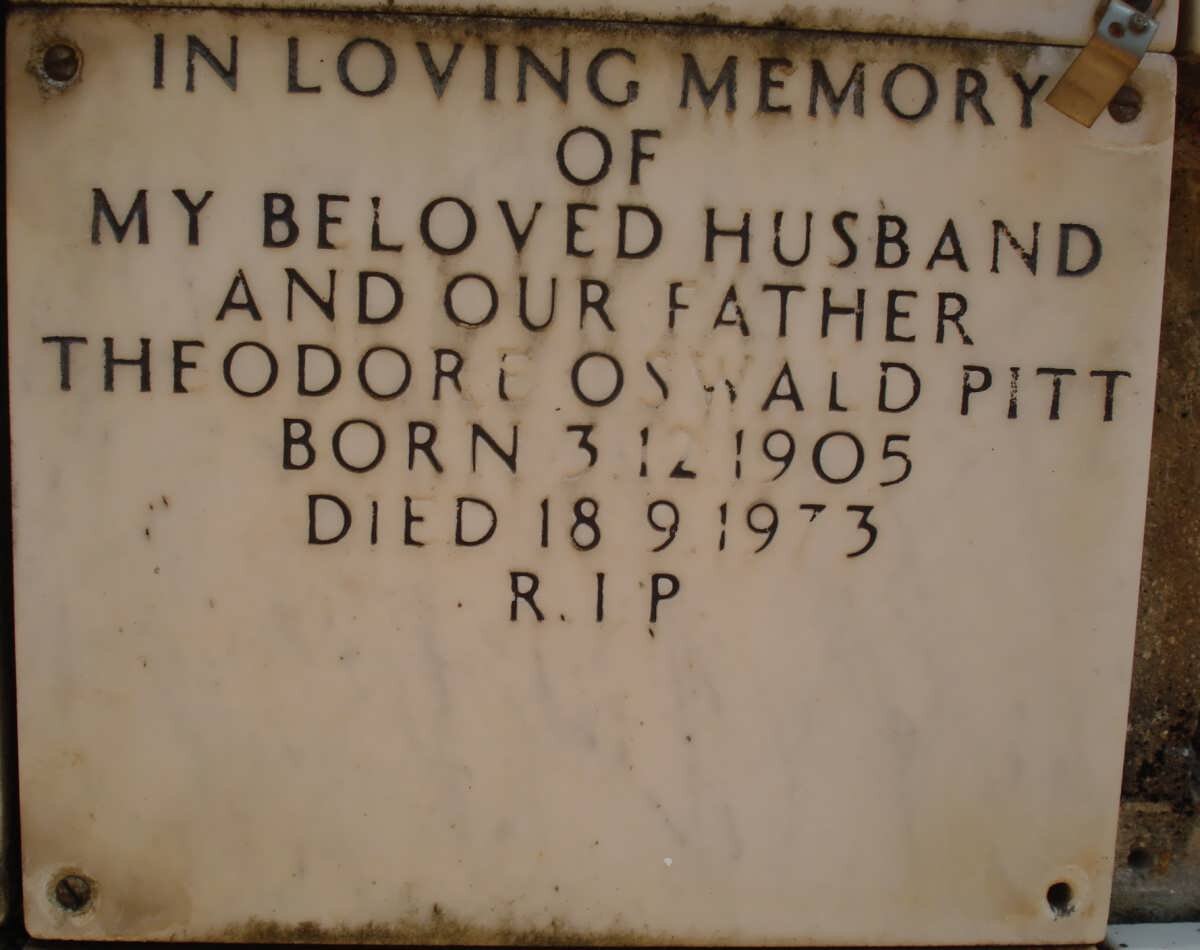 IN LOVING MEMORY
OF
MY BELOVED HUSBAND
AND OUR FATHER
THEODORE OSWALD PITT
BORN 3 12 1905
DIED 18 9 1973
R. I P